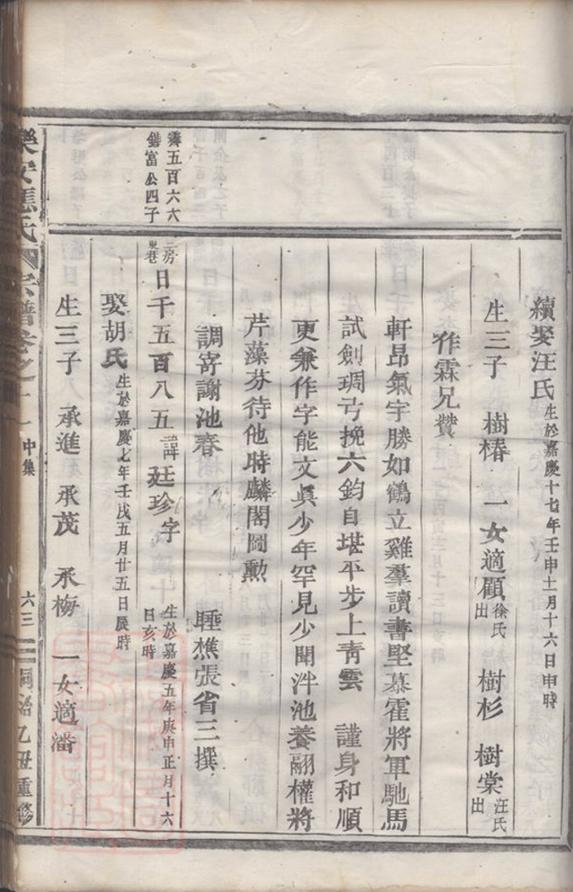 續娶汪氏生於嘉慶十七年壬申十一月十六日申時
生三子 樹椿 一女適顧徐氏出 樹杉 樹棠汪氏出
作霖兄贊
軒昂氣宇勝如鶴立雞羣讀書堅慕霍將軍馳馬
試劍琱弓挽六鈞自堪平步上靑雲 謹身和順
更兼作字能文眞少年罕見少聞泮池養翮權將
芹藻芬待他時麟閣圖勲
調寄謝池春 睡樵張省三撰
溱五百六六
鍇富公四子
三房
巷
日千五百八五諱廷珍字 生於嘉慶五年庚申正月十六日亥時
娶胡氏生於嘉慶七年壬戌五月廿五日辰時
生三子 承進 承茂 承梅 一女適潘
樂安應氏宗譜卷之十一 中集 六三 同治乙丑重修